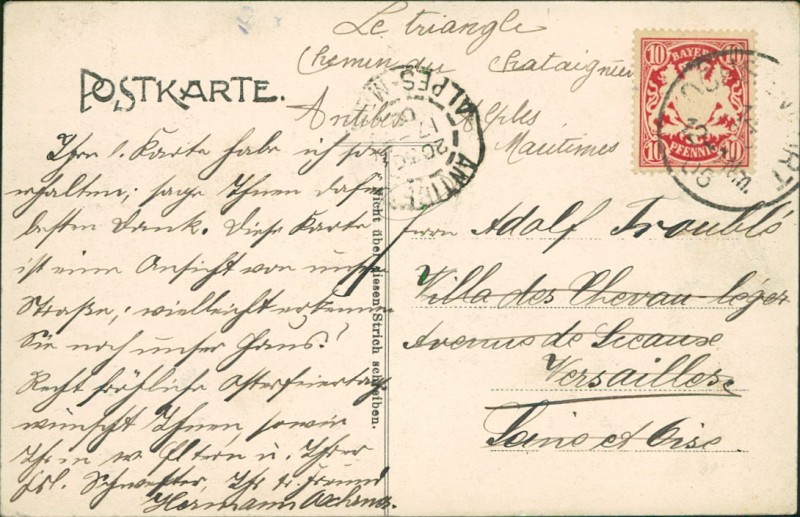 Le triangle
Chemin du Chataignier
Antibes Alpes
Maritimes
POSTKARTE.
ALPES-M
ANTIBES
BAYERN
10 10
10 PFENNIG 10
Ihre l. Karte habe ich
erhalten; sage Ihnen dafür
besten Dank. Diese Karte
ist eine Ansicht von unserer
Straße; vielleicht erkennen
Sie noch unser Haus!
Recht fröhliche Osterfeiertage
wünscht Ihnen sowie
Ihren w. Eltern u. Ihrer
frl. Schwester, Ihr tr. Freund
Hermann
Nicht über diesen Strich schreiben.
Herrn Adolf Troublé
Villa des Chevau-légers
Avenue de Sceaux
Versailles
Seine et Oise.